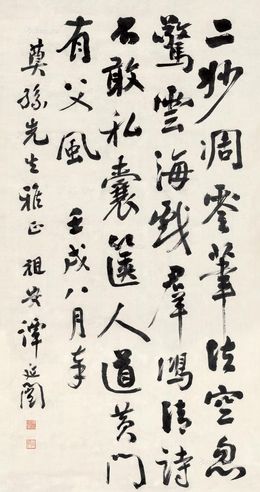 二妙凋零筆法空忽
驚雲海戲羣鴻清詩
不敢私囊篋人道黃門
有父風 壬戌八月奉
蓂孫先生雅正 祖安譚延闓